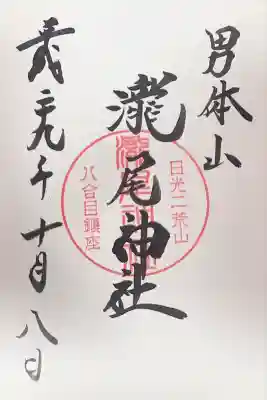 男体山
瀧尾神社
日光二荒山
瀧尾神社
八合目鎮座
平成二九年十月八日